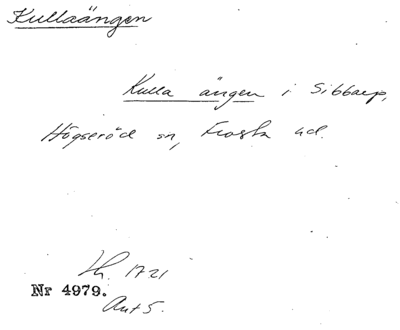 Kullaängen
Kulla ängen i Sibbarp,
Högseröd sn, Frosta hd.
Lh. 1721
Nr 4979.
Ant 5.